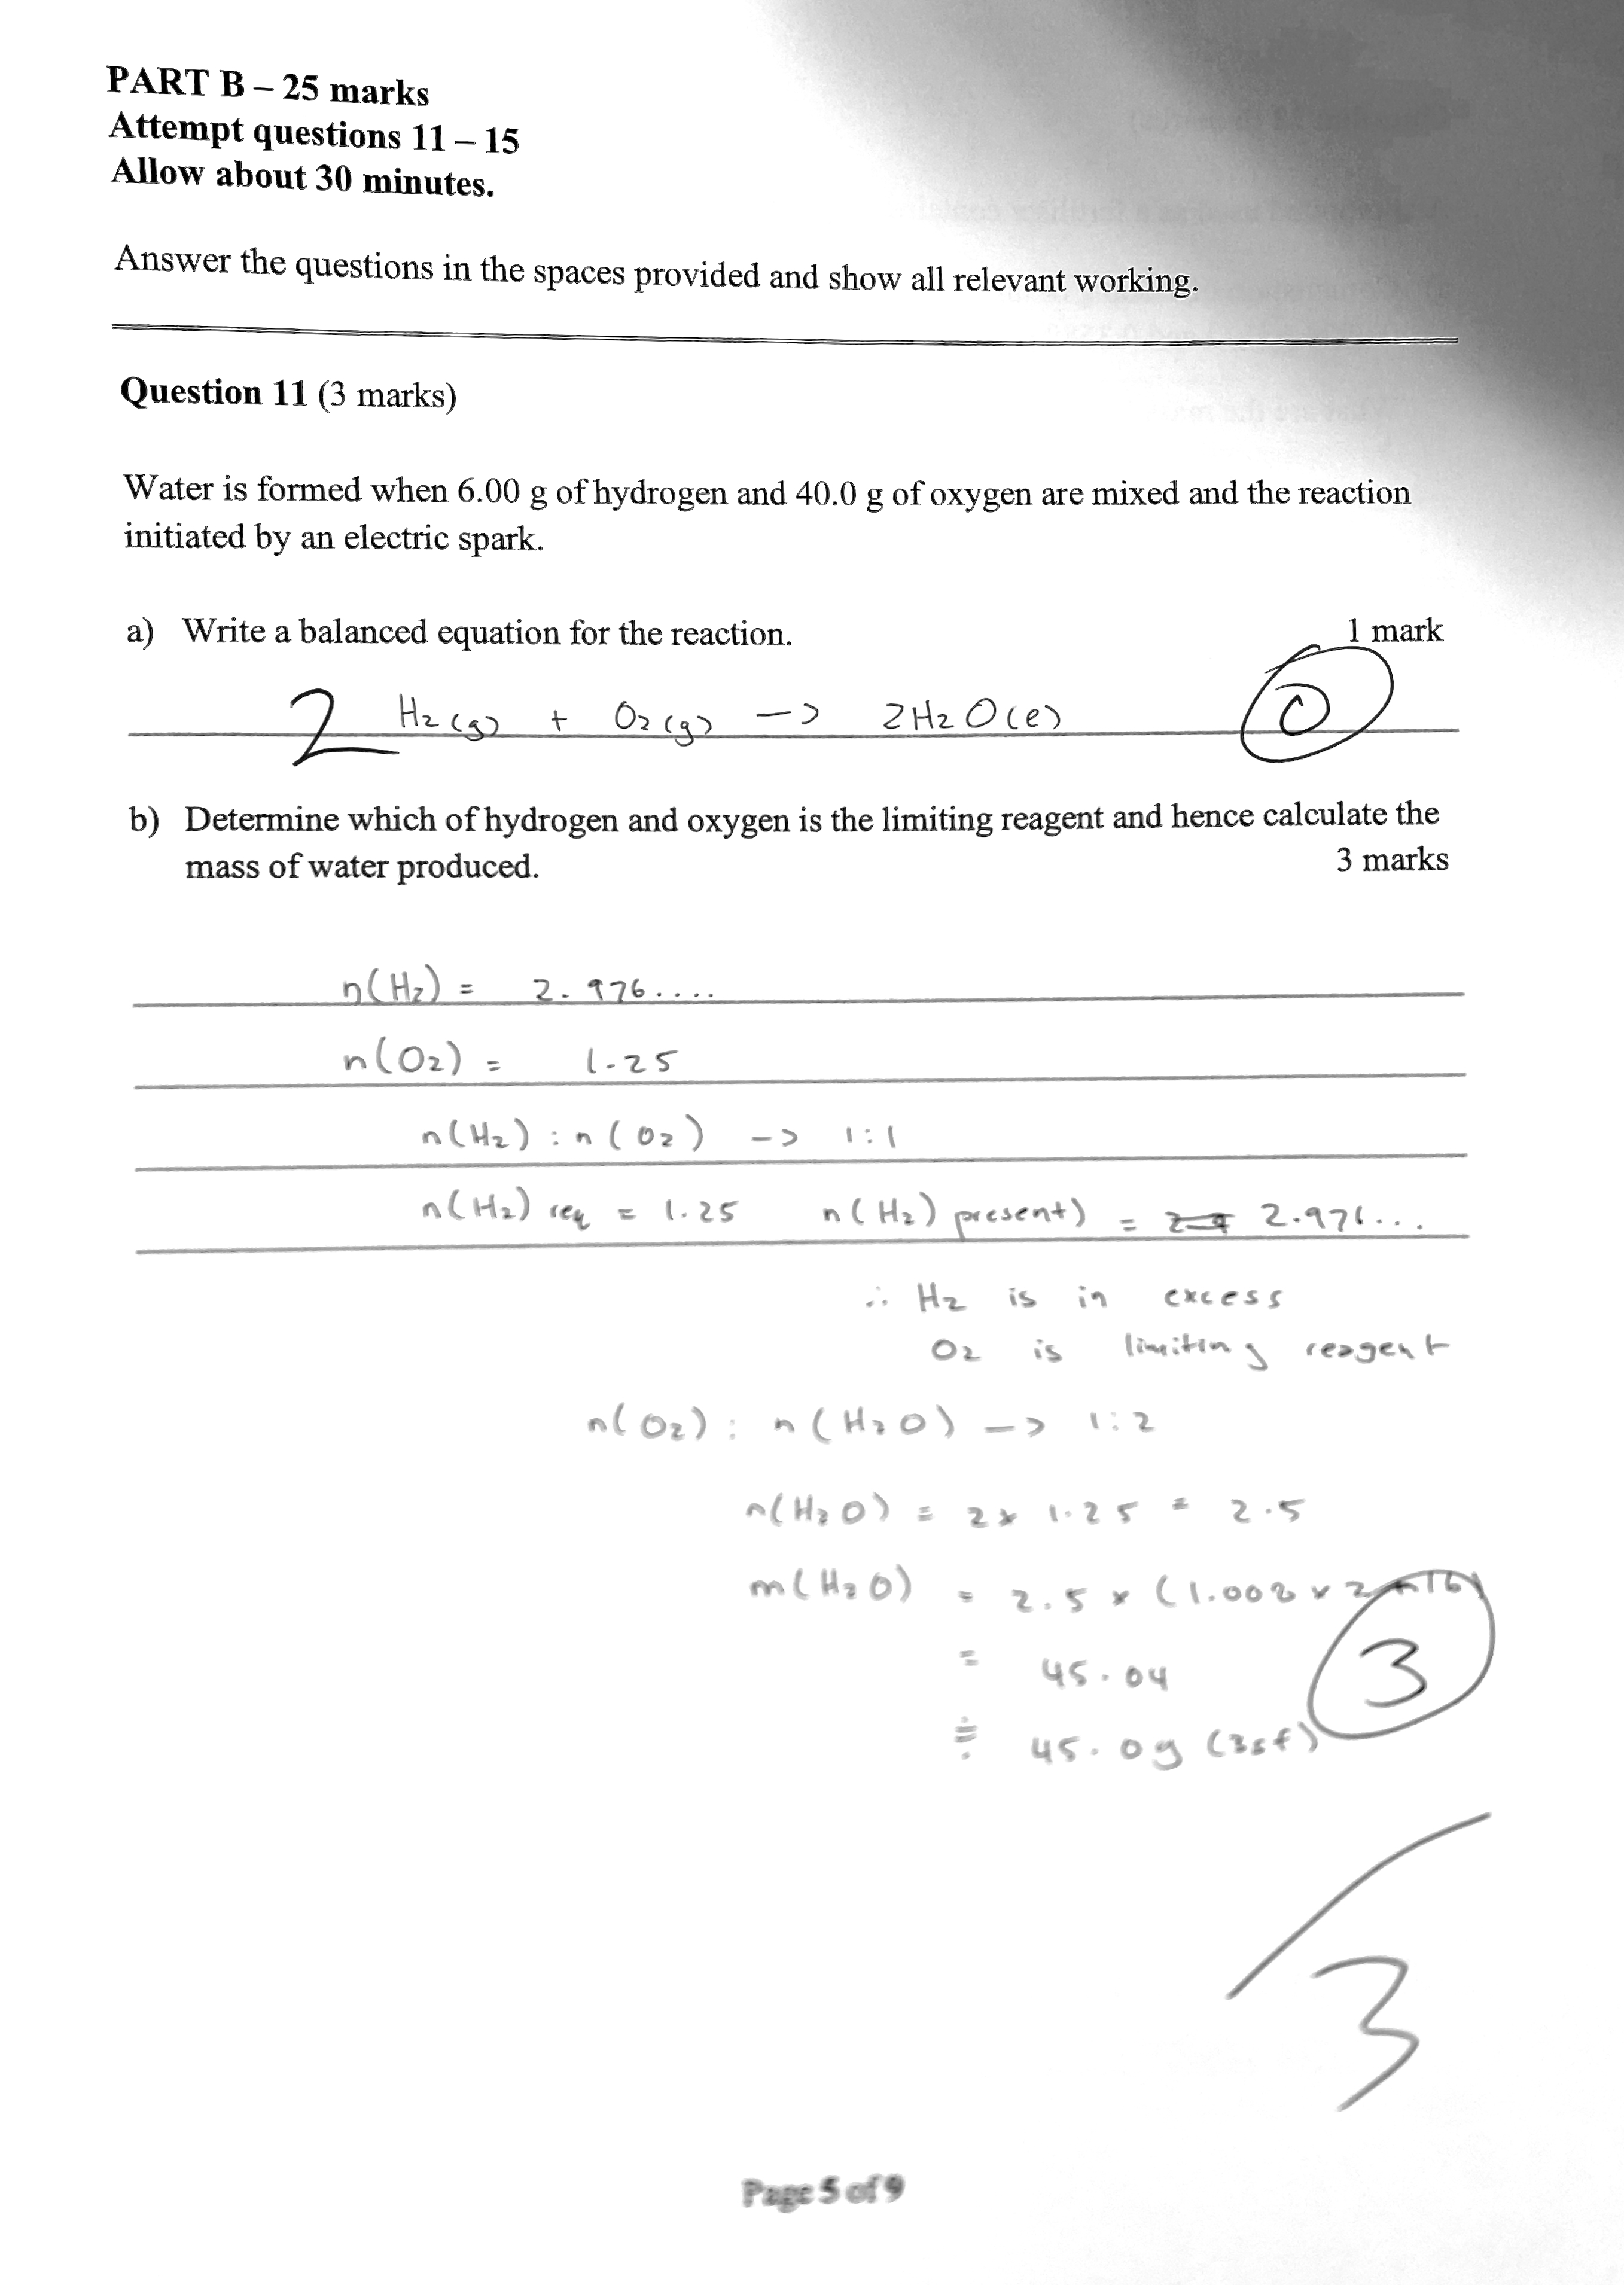 PART B – 25 marks
Attempt questions 11 – 15
Allow about 30 minutes.
Answer the questions in the spaces provided and show all relevant working.
Question 11 (3 marks)
Water is formed when 6.00 g of hydrogen and 40.0 g of oxygen are mixed and the reaction
initiated by an electric spark.
a) Write a balanced equation for the reaction. 1 mark
2 H2(g) + O2(g) -> 2H2O(l) 0
b) Determine which of hydrogen and oxygen is the limiting reagent and hence calculate the
mass of water produced. 3 marks
n(H2) = 2.976....
n(O2) = 1.25
n(H2) : n(O2) -> 1:1
n(H2) req = 1.25 n(H2) present) = 2.976...
∴ H2 is in excess
O2 is limiting reagent
n(O2) : n(H2O) -> 1:2
n(H2O) = 2 x 1.25 = 2.5
m(H2O) = 2.5 x (1.008 x 2 + 16)
= 45.04
≑ 45.0g (3sf)
3
3
Page 5 of 9